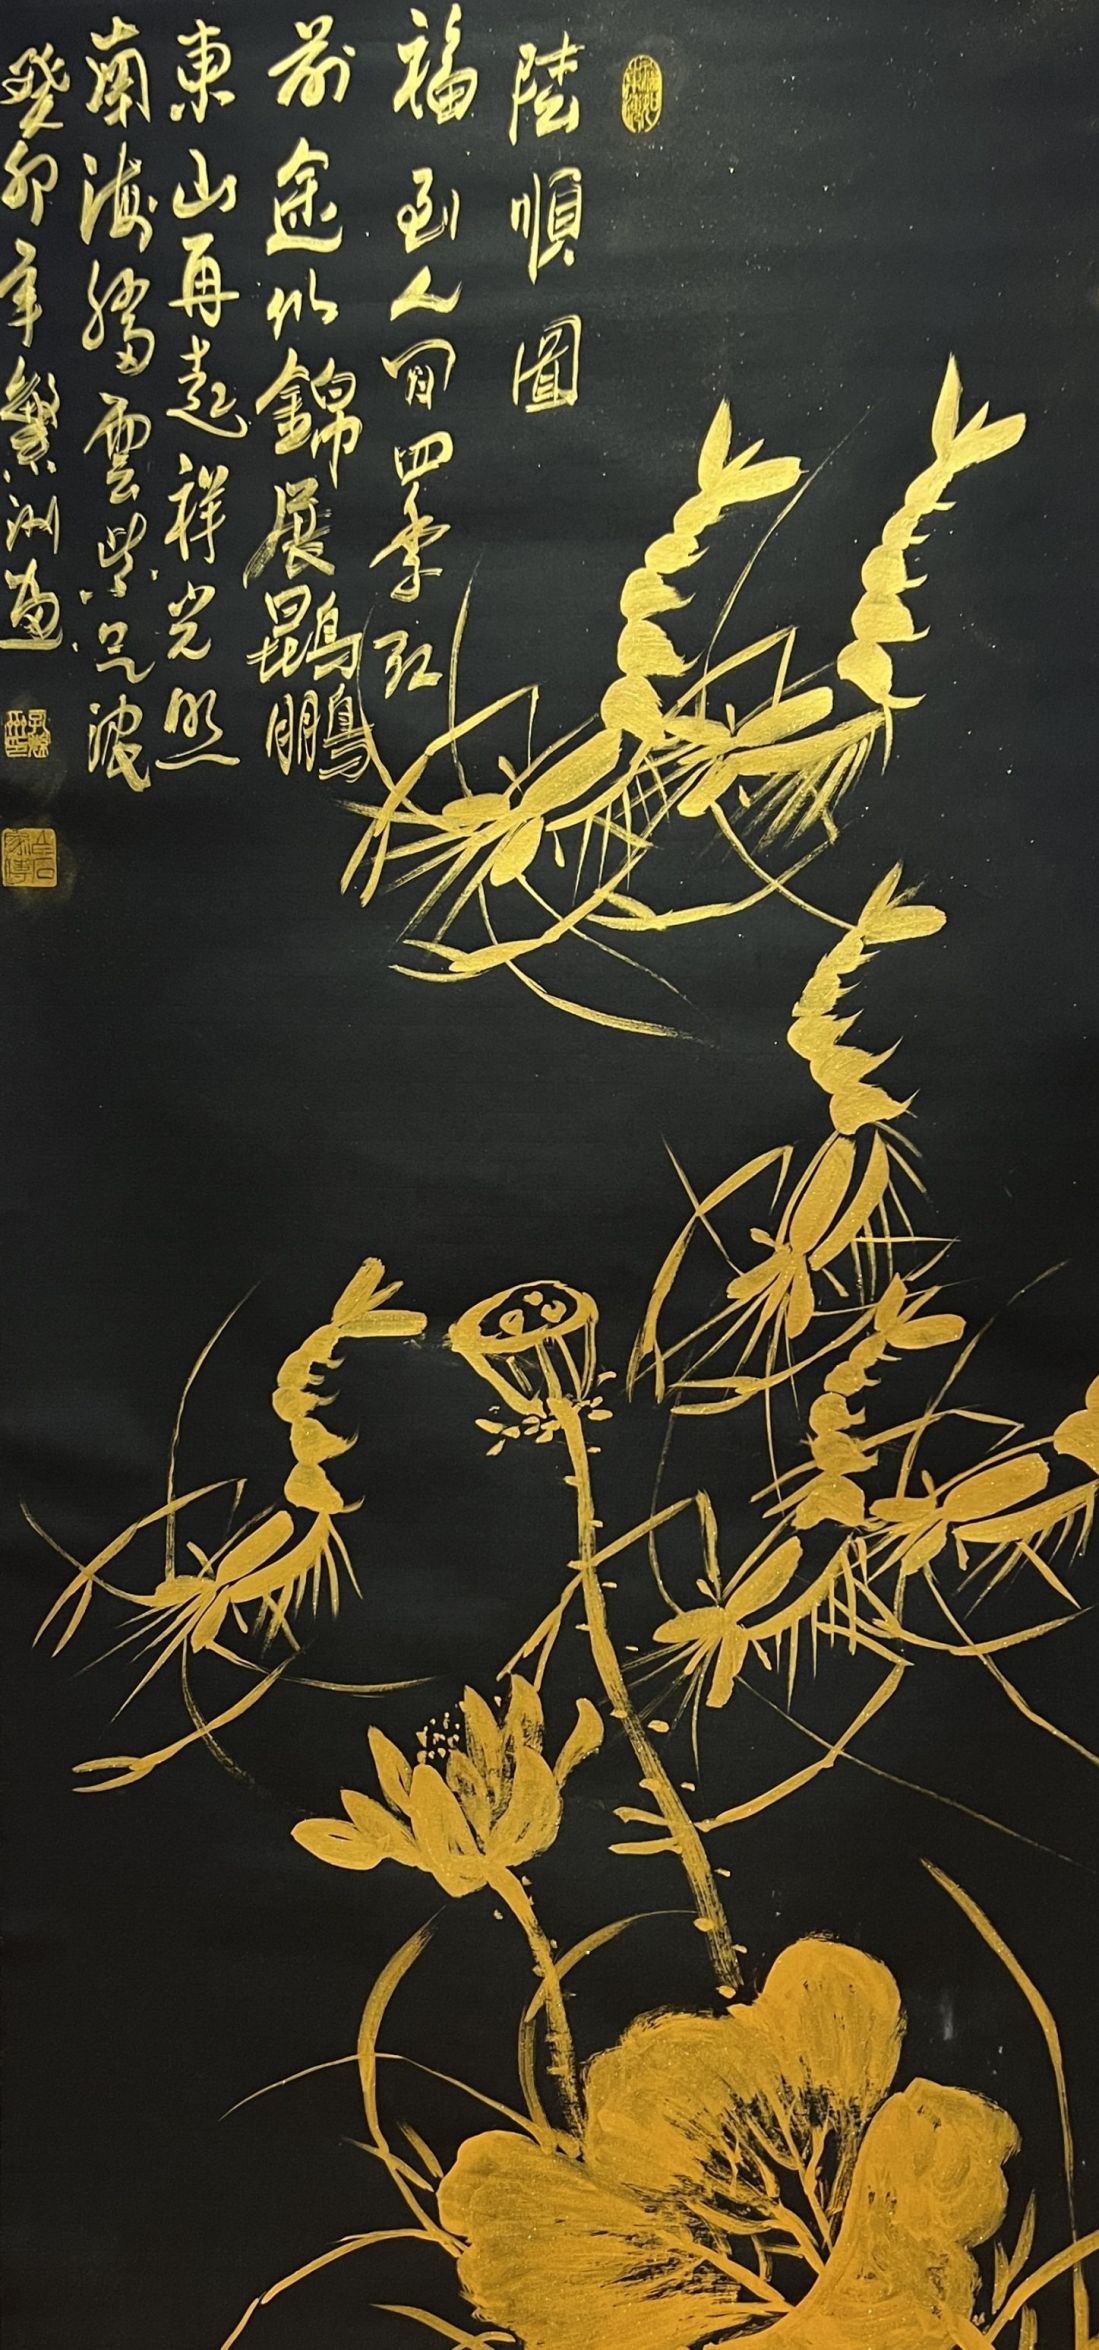 陸順圖
福到人間四季紅
前途似錦展鵾鵬
東山再起祥光照
南海騰雲紫足波
癸卯年繁洲畫